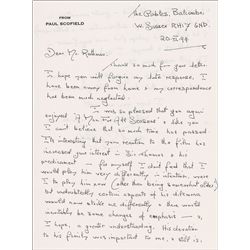 FROM
PAUL SCOFIELD
The Gables, Balcombe,
W. Sussex RH17 6ND.
20-III-94
Dear Mr
Thank so much for your letter.
I hope you will forgive my late response, I
have been away from home & my correspondence
has been much neglected.
I was so pleased that you again
enjoyed "A Man For All Seasons" & like you
I can't believe that so much time has passed.
It's interesting that your reaction to the film has
increased your interest in Sir Thomas & his
predicament — for myself I don't find that I
would play him very differently in intention, were
I to play him now (other than being somewhat older)
but undoubtedly certain aspects of his dilemma
would now strike me differently & there would
inevitably be some changes of emphasis — &,
I hope, a greater understanding. His devotion
to his family was important to me, & still is.